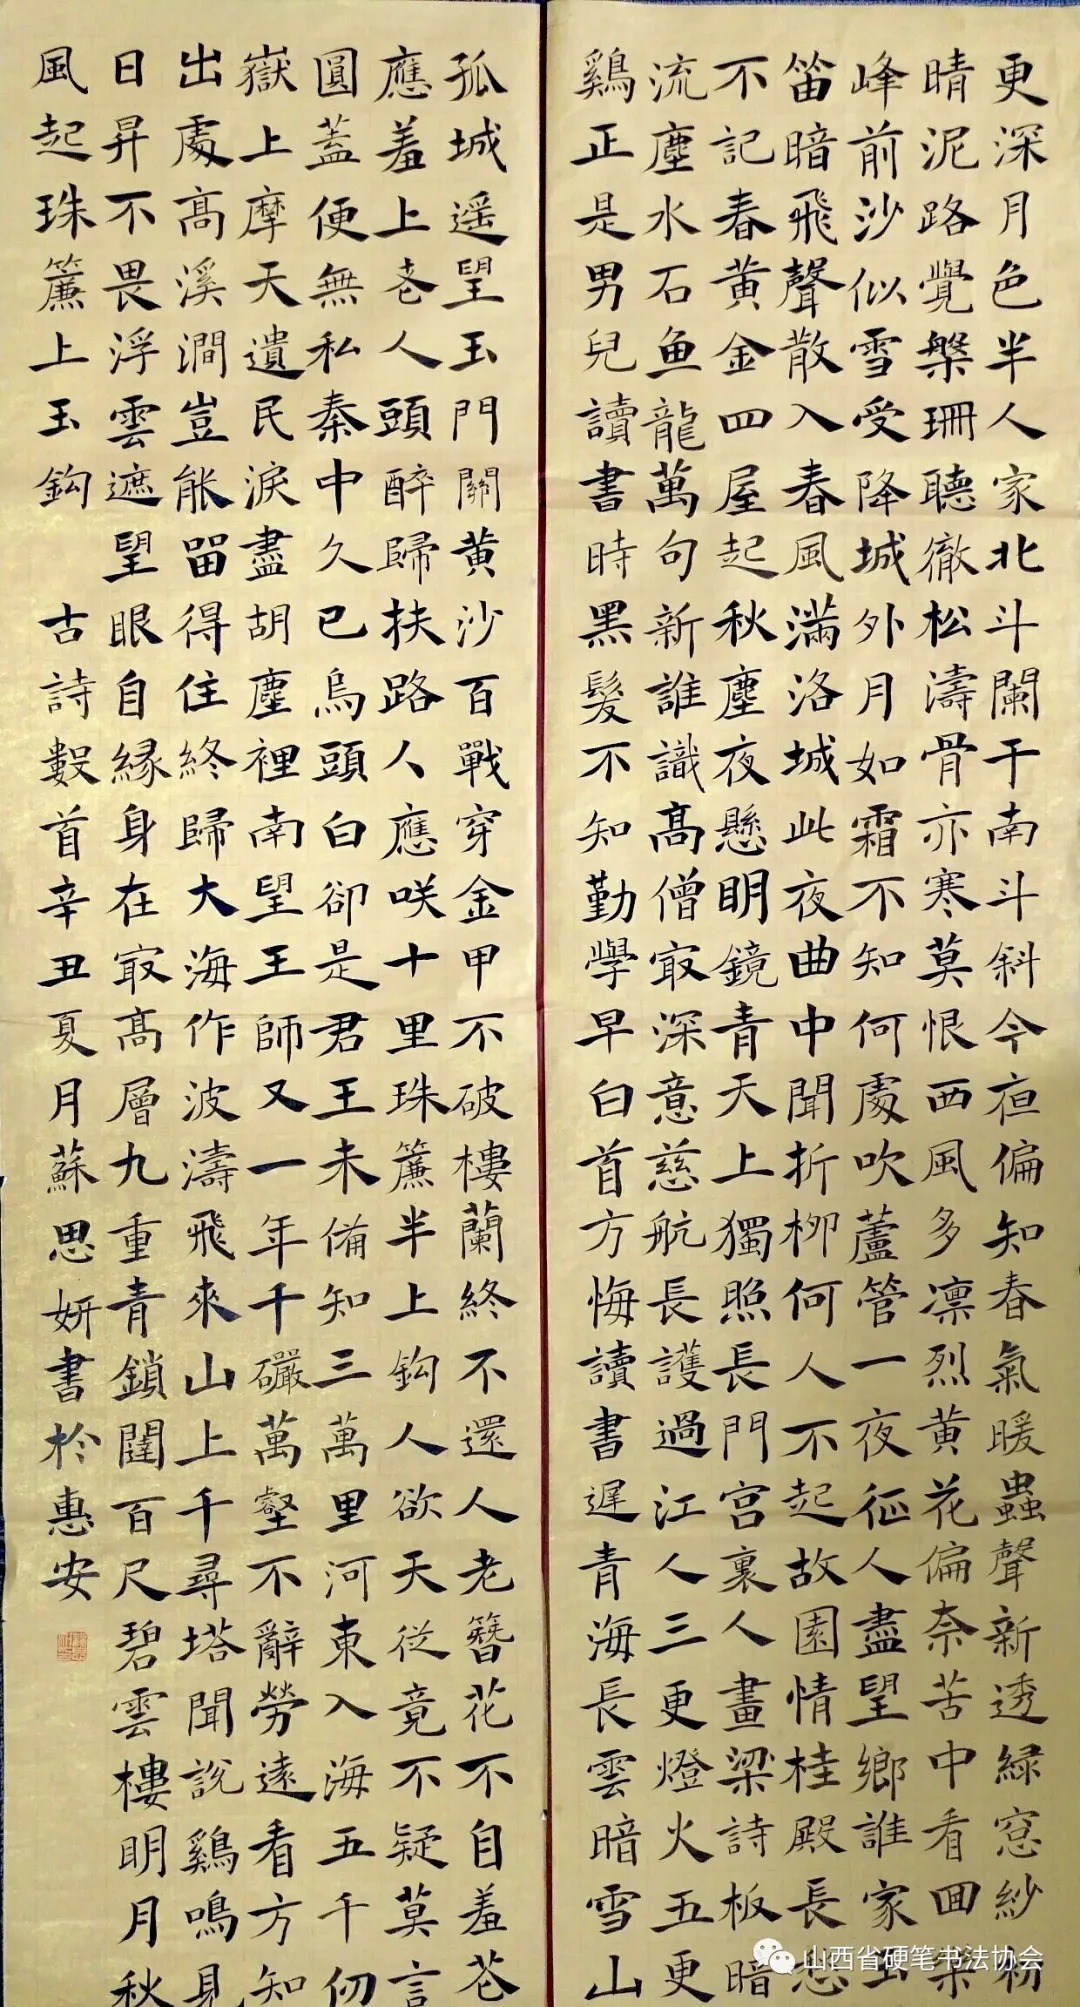 更深月色半人家北斗闌干南斗斜今夜偏知春氣暖蟲聲新透緑窓紗初
晴泥路覺槃珊聽徹松濤骨亦寒莫恨西風多凛烈黄花偏奈苦中看囬樂
峰前沙似雪受降城外月如霜不知何處吹蘆管一夜征人盡望鄉誰家玉
笛暗飛聲散入春風滿洛城此夜曲中聞折柳何人不起故園情桂殿長愁
不記春黄金四屋起秋塵夜懸明鏡青天上獨照長門宫裏人畫梁詩板暗
流塵水石魚龍萬句新誰識髙僧最深意慈航長護過江人三更燈火五更
鷄正是男兒讀書時黑髮不知勤學早白首方悔讀書遲青海長雲暗雪山
孤城遥望玉門關黄沙百戰穿金甲不破樓蘭終不還人老簪花不自羞花
應羞上老人頭醉歸扶路人應咲十里珠簾半上鈎人欲天從竟不疑莫言
圓蓋便無私秦中久已烏頭白卻是君王未備知三萬里河東入海五千仞
嶽上摩天遺民淚盡胡塵裡南望王師又一年千巖萬壑不辭勞遠看方知
出處髙溪澗豈能留得住終歸大海作波濤飛來山上千尋塔聞說鷄鳴見
日昇不畏浮雲遮望眼自緣身在最髙層九重青鎖闥百尺碧雲樓明月秋
風起珠簾上玉鈎 古詩數首辛丑夏月蘇思妍書於惠安
山西省硬笔书法协会